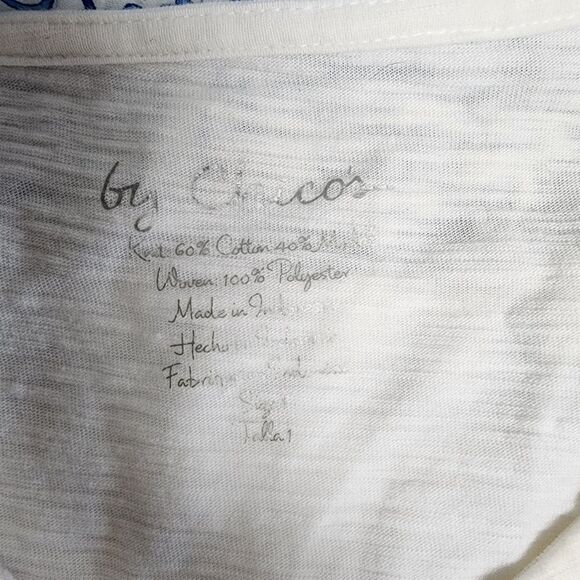 by Chico's
Knit: 60% Cotton 40%
Woven: 100% Polyester
Made in
Hecho
Size 1
Talla 1